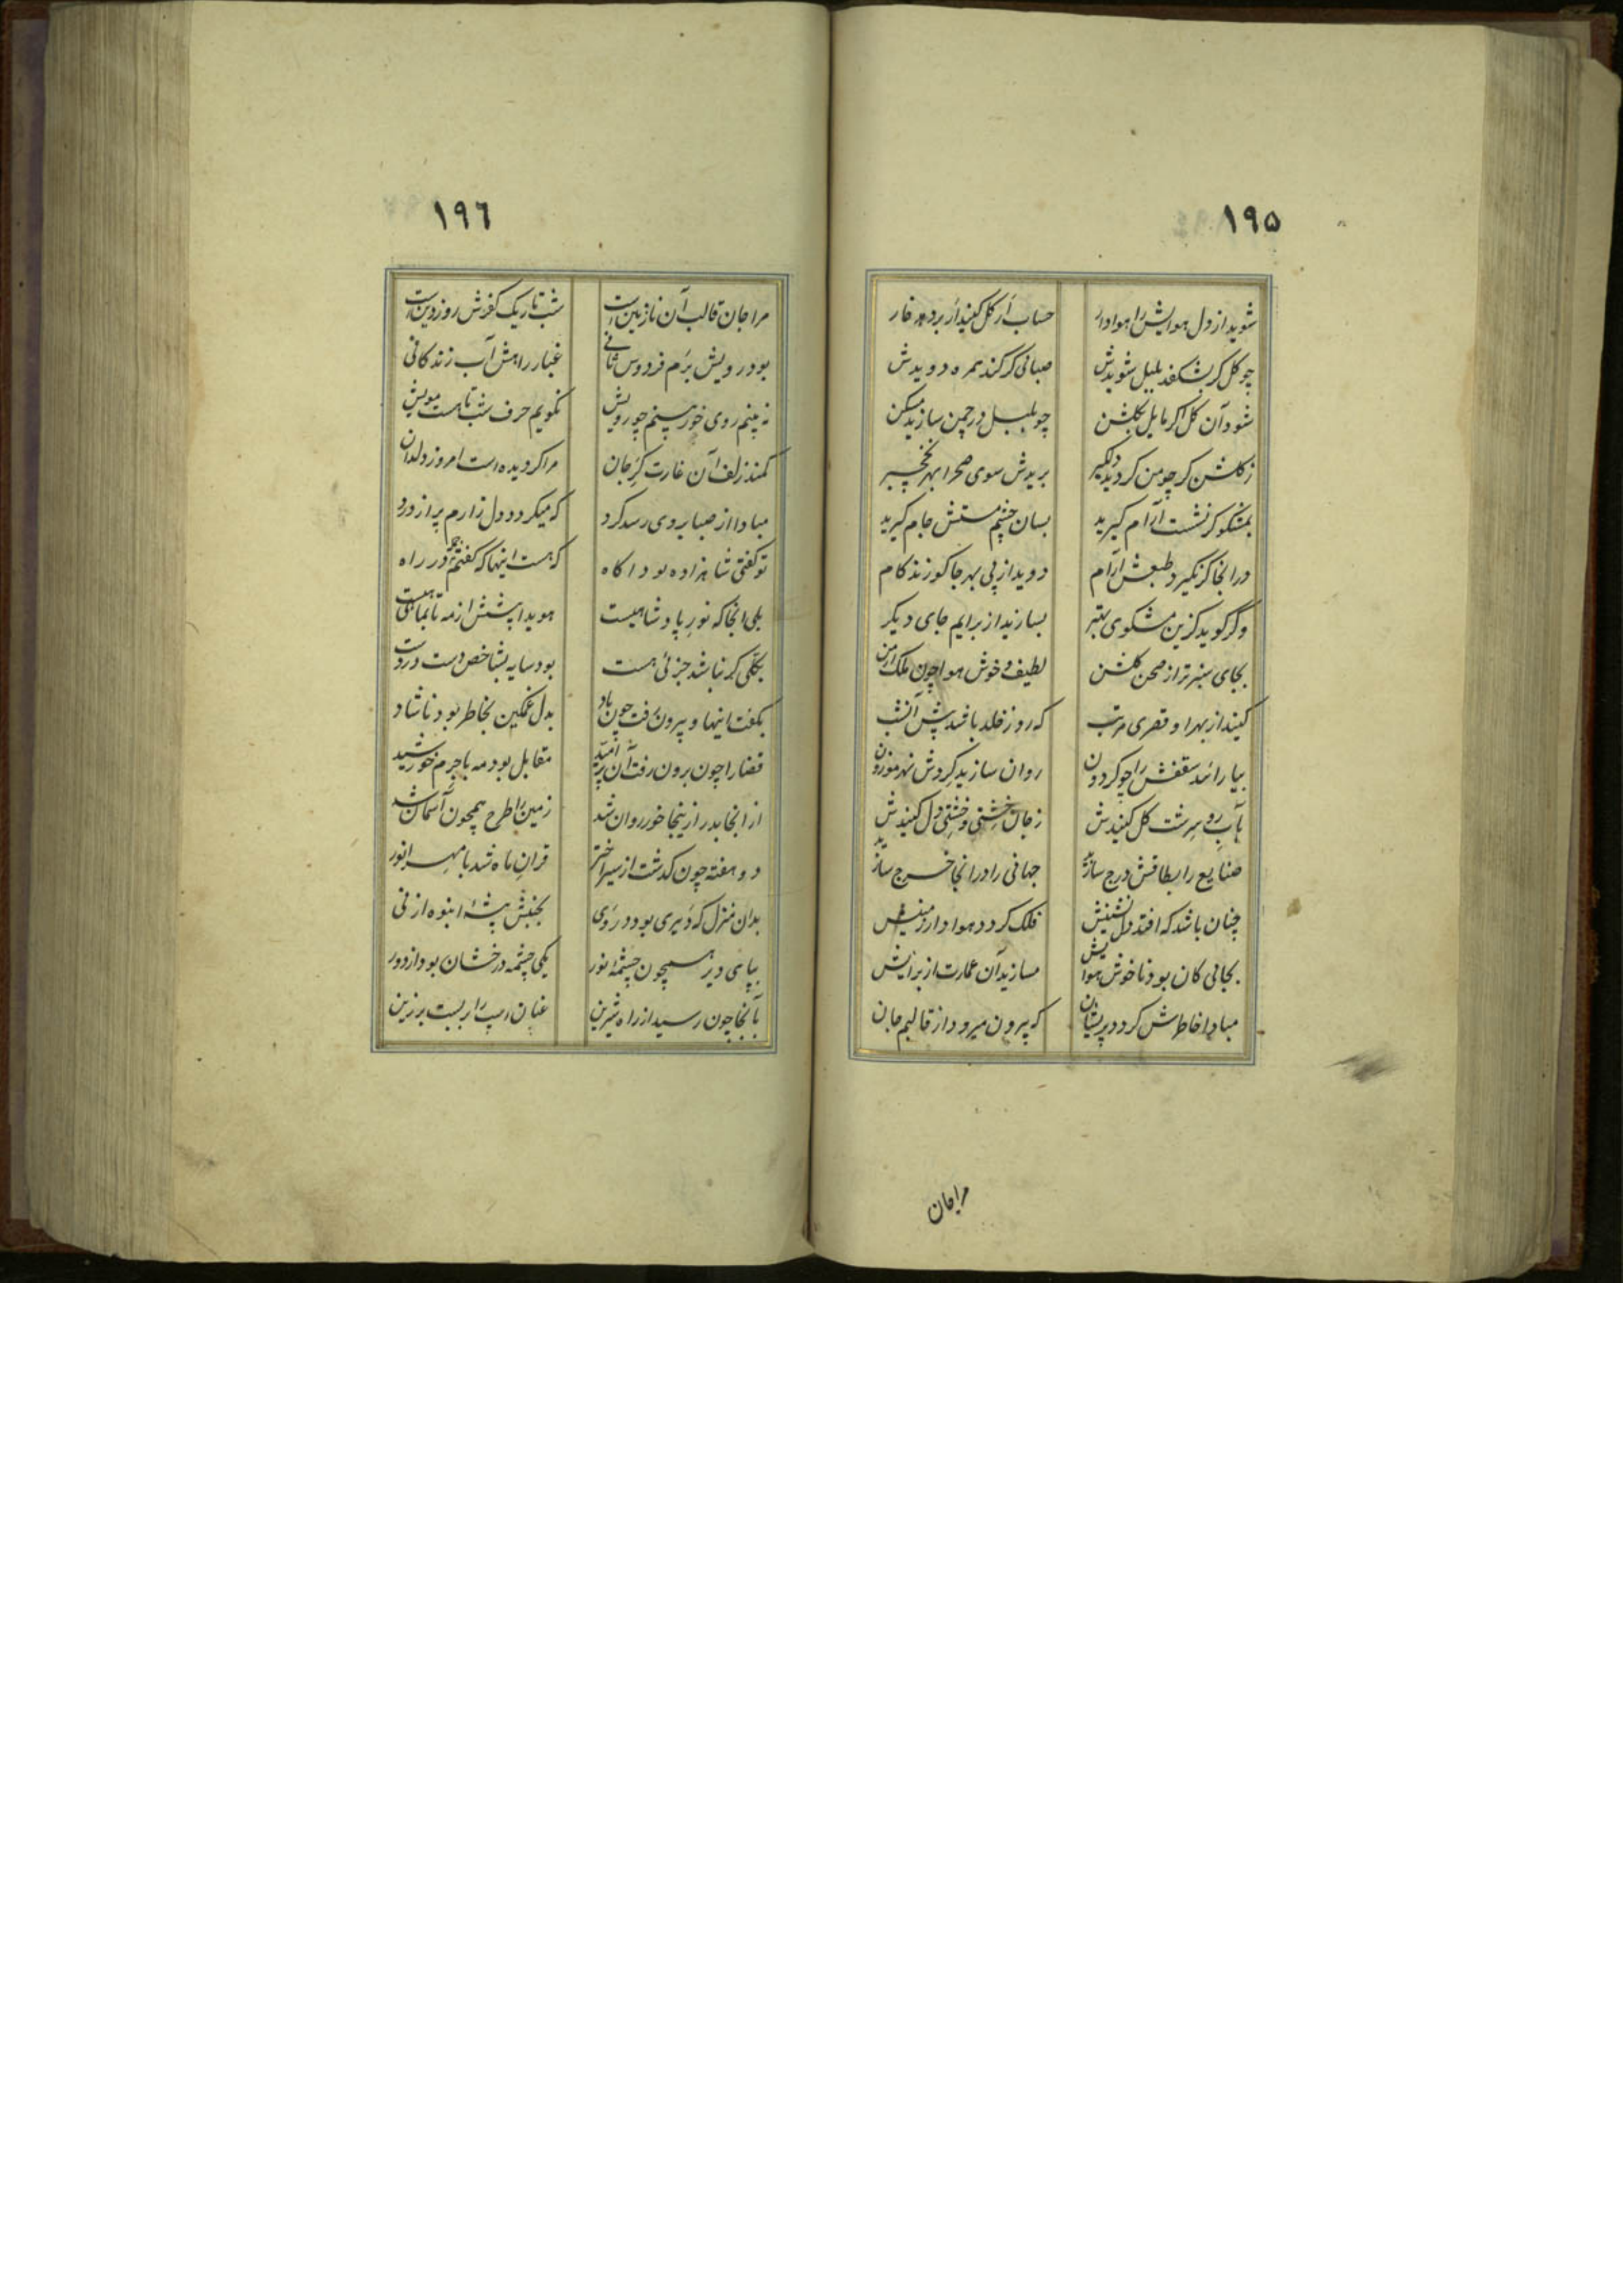 ١٩٥
شوید از دل هوایش را هوادار
حساب ار گل کنید ار بردمد خار
چو گل گر بشکفد بلبل شویدش
صبائی گر کند همره دویدش
شود آن گل اگر مایل بگلشن
چو بلبل در چمن سازید مسکن
ز گلشن گر چو من گردید دلگیر
بریدش سوی صحرا بهر نخچیر
بمشکو گر نشست آرام گیرید
بسان چشم مستش جام گیرید
در انجا گر نگیرد طبعش آرام
دوید از پی بهر جا کو زند کام
وگر گوید کزین مشکوی بهتر
بسازید از برایم جای دیگر
بجای سبزتر از صحن گلشن
لطیف و خوش هوا چون ملک ارمن
کنید از بهر او قصری مرتب
که روز خلد باشد پیش آن شب
بیارائید سقفش را چو گردون
روان سازید گردش نهر موزون
بآب رو سرشت گل کنیدش
ز جان خشتی و خشتی دل کنیدش
صنایع را بطاقش درج سازید
جهانی را در انجا خرج سازید
چنان باشد که افتد دل نشینش
فلک گردد هوادار زمینش
بجائی کان بود ناخوش هوایش
مسازید آن عمارت از برایش
مبادا خاطرش گردد پریشان
که بیرون میرود از قالبم جان
مرا جان
١٩٦
مرا جان قالب آن نازنین است
شب تاریک کفرش روز دین است
بود رویش برم فردوس ثانی
غبار راهش آب زندگانی
نه بینم روی خور بینم چو رویش
نگویم حرف شب تا هست مویش
کمند زلف آن غارت گر جان
مرا گردیده است امروز ولدان
مبادا از صبا بروی رسد گرد
که میگردد دل زارم پر از درد
تو گفتی شاهزاده بود اگاه
که هست اینها که گفتم در راه
بلی انجا که نور پادشاهیست
هویدا پیشش از مه تا بماهیست
بکلی گر نباشد جزئی هست
بود سایه بشاخص دست در دست
بگفت اینها و بیرون رفت چون باد
بدل غمگین بخاطر بود ناشاد
قضا را چون برون رفت آن پر امید
مقابل بود مه با جرم خورشید
از انجا بدر ازینجا خور روان شد
زمین را طرح همچون آسمان شد
دو هفته چون گذشت از سیر اختر
قران ماه شد با مهر انور
بدان منزل که دیری بود در وی
بجنبش بیشهٔ انبوه از نی
بپای دیر همچون چشمهٔ نور
یکی چشمه درخشان بود از دور
بآنجا چون رسید از راه شیرین
عنان اسب را بربست بر زین